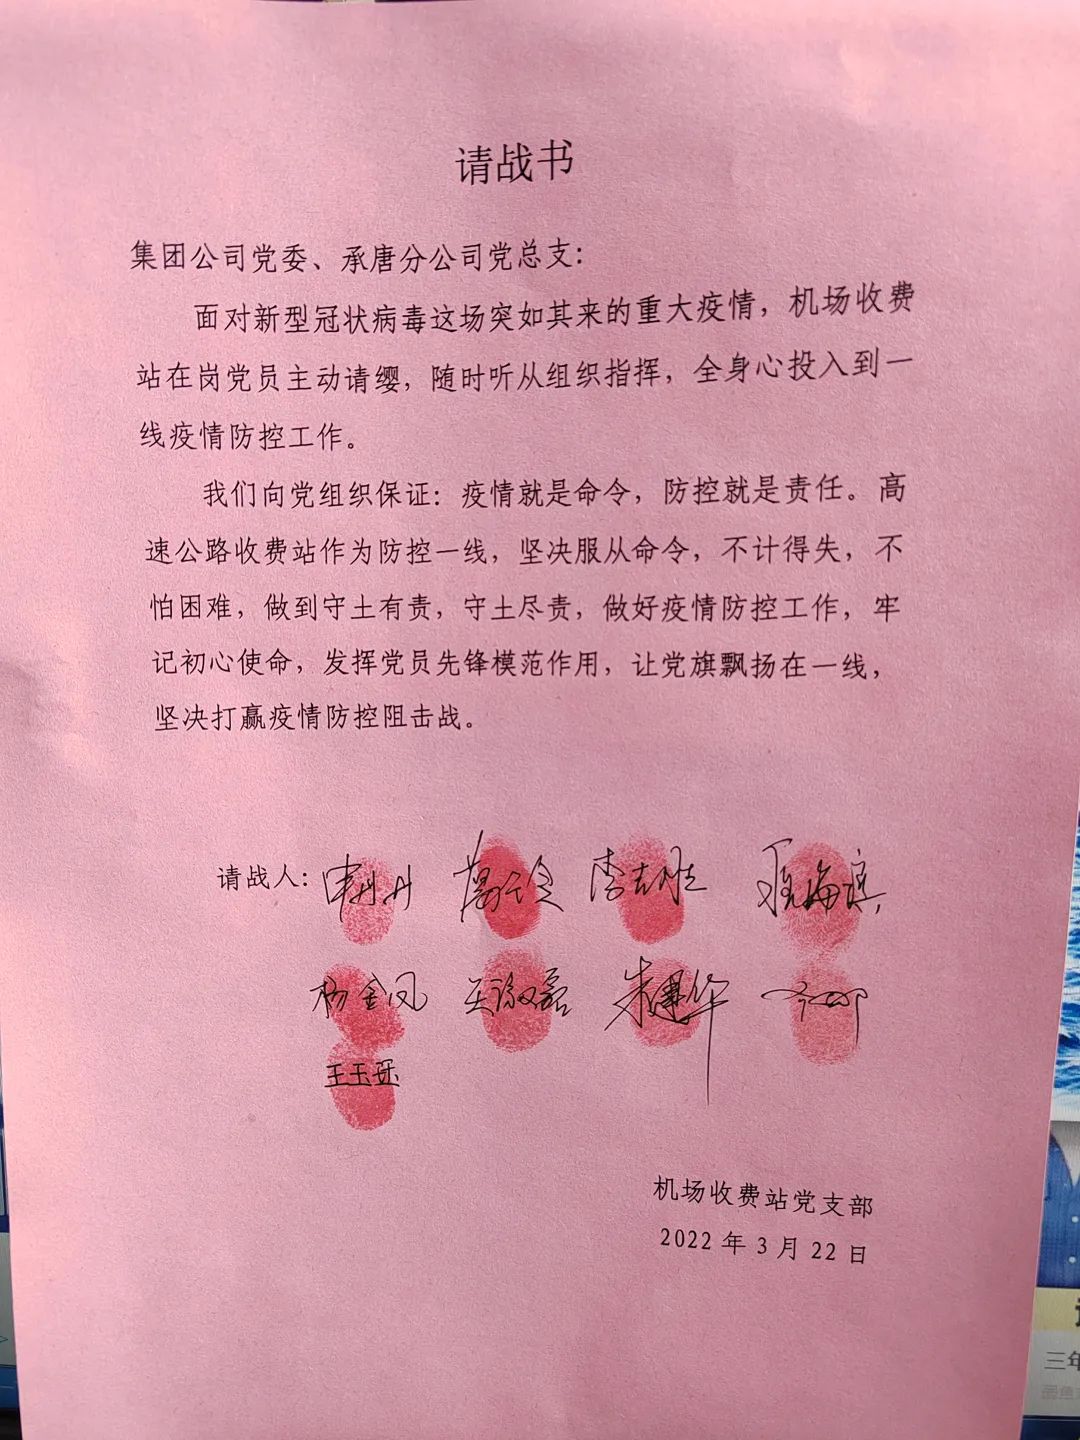 请战书
集团公司党委、承唐分公司党总支：
面对新型冠状病毒这场突如其来的重大疫情，机场收费
站在岗党员主动请缨，随时听从组织指挥，全身心投入到一
线疫情防控工作。
我们向党组织保证：疫情就是命令，防控就是责任。高
速公路收费站作为防控一线，坚决服从命令，不计得失，不
怕困难，做到守土有责，守土尽责，做好疫情防控工作，牢
记初心使命，发挥党员先锋模范作用，让党旗飘扬在一线，
坚决打赢疫情防控阻击战。
请战人：
杨金凤 朱建华
机场收费站党支部
2022年3月22日
三年